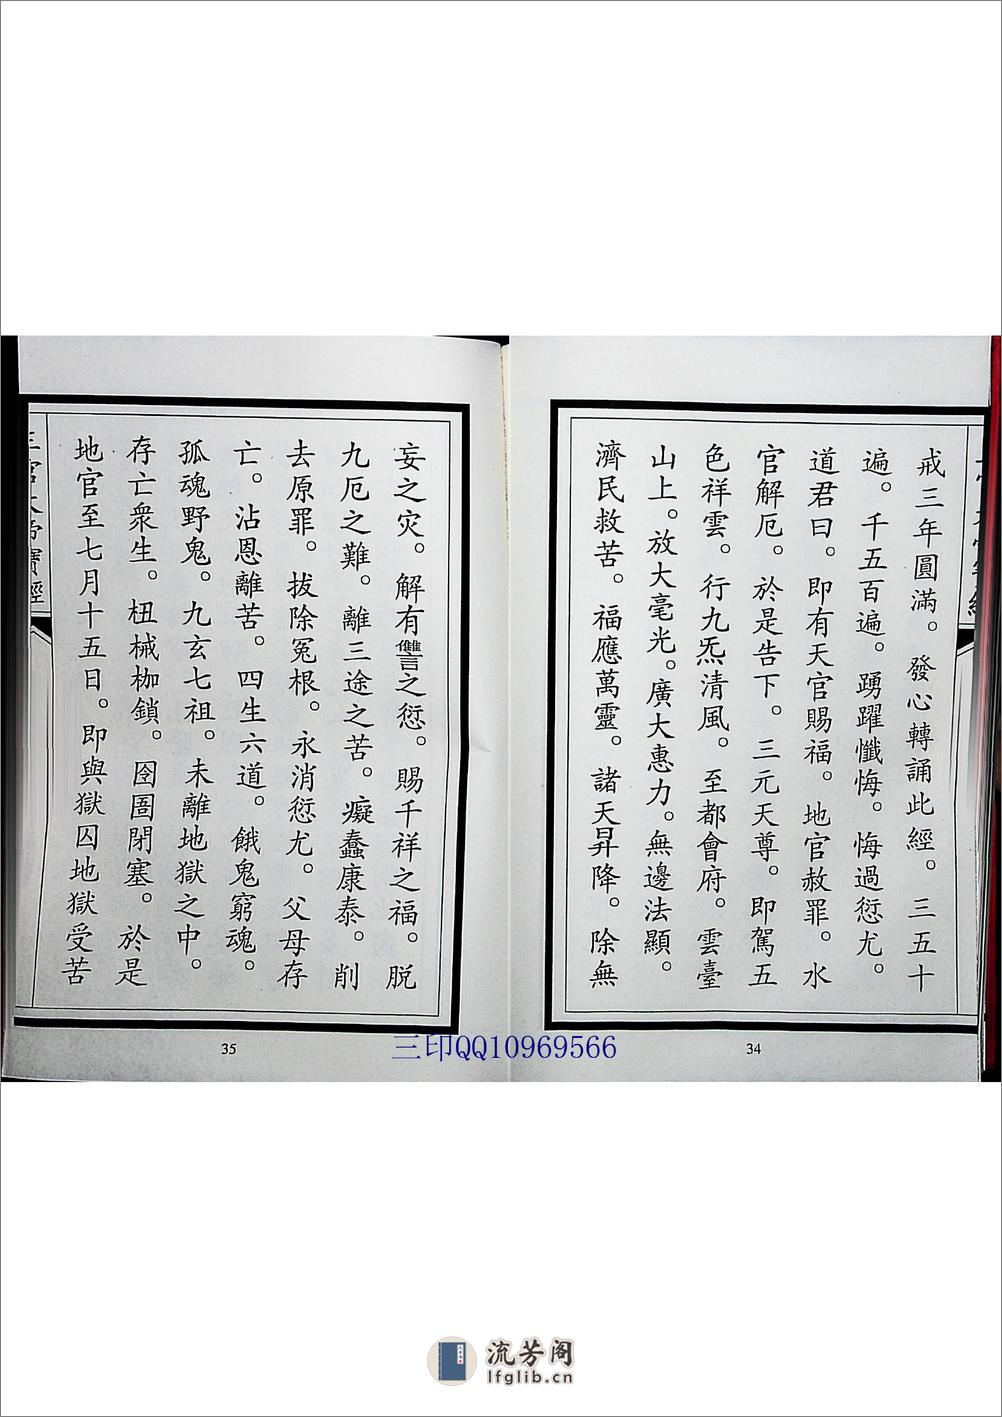 戒三年圓滿。發心轉誦此經。三五十
遍。千五百遍。踴躍懺悔。悔過愆尤。
道君曰。即有天官賜福。地官赦罪。水
官解厄。於是告下。三元天尊。即駕五
色祥雲。行九炁清風。至都會府。雲臺
山上。放大毫光。廣大惠力。無邊法顯。
濟民救苦。福應萬靈。諸天昇降。除無
34
妄之灾。解有讐之愆。賜千祥之福。脱
九厄之難。離三途之苦。癡蠢康泰。削
去原罪。拔除冤根。永消愆尤。父母存
亡。沾恩離苦。四生六道。餓鬼窮魂。
孤魂野鬼。九玄七祖。未離地獄之中。
存亡衆生。杻械枷鎖。囹圄閉塞。於是
地官至七月十五日。即與獄囚地獄受苦
三官大帝寶經
35
三印QQ10969566
流芳阁
lfglib.cn